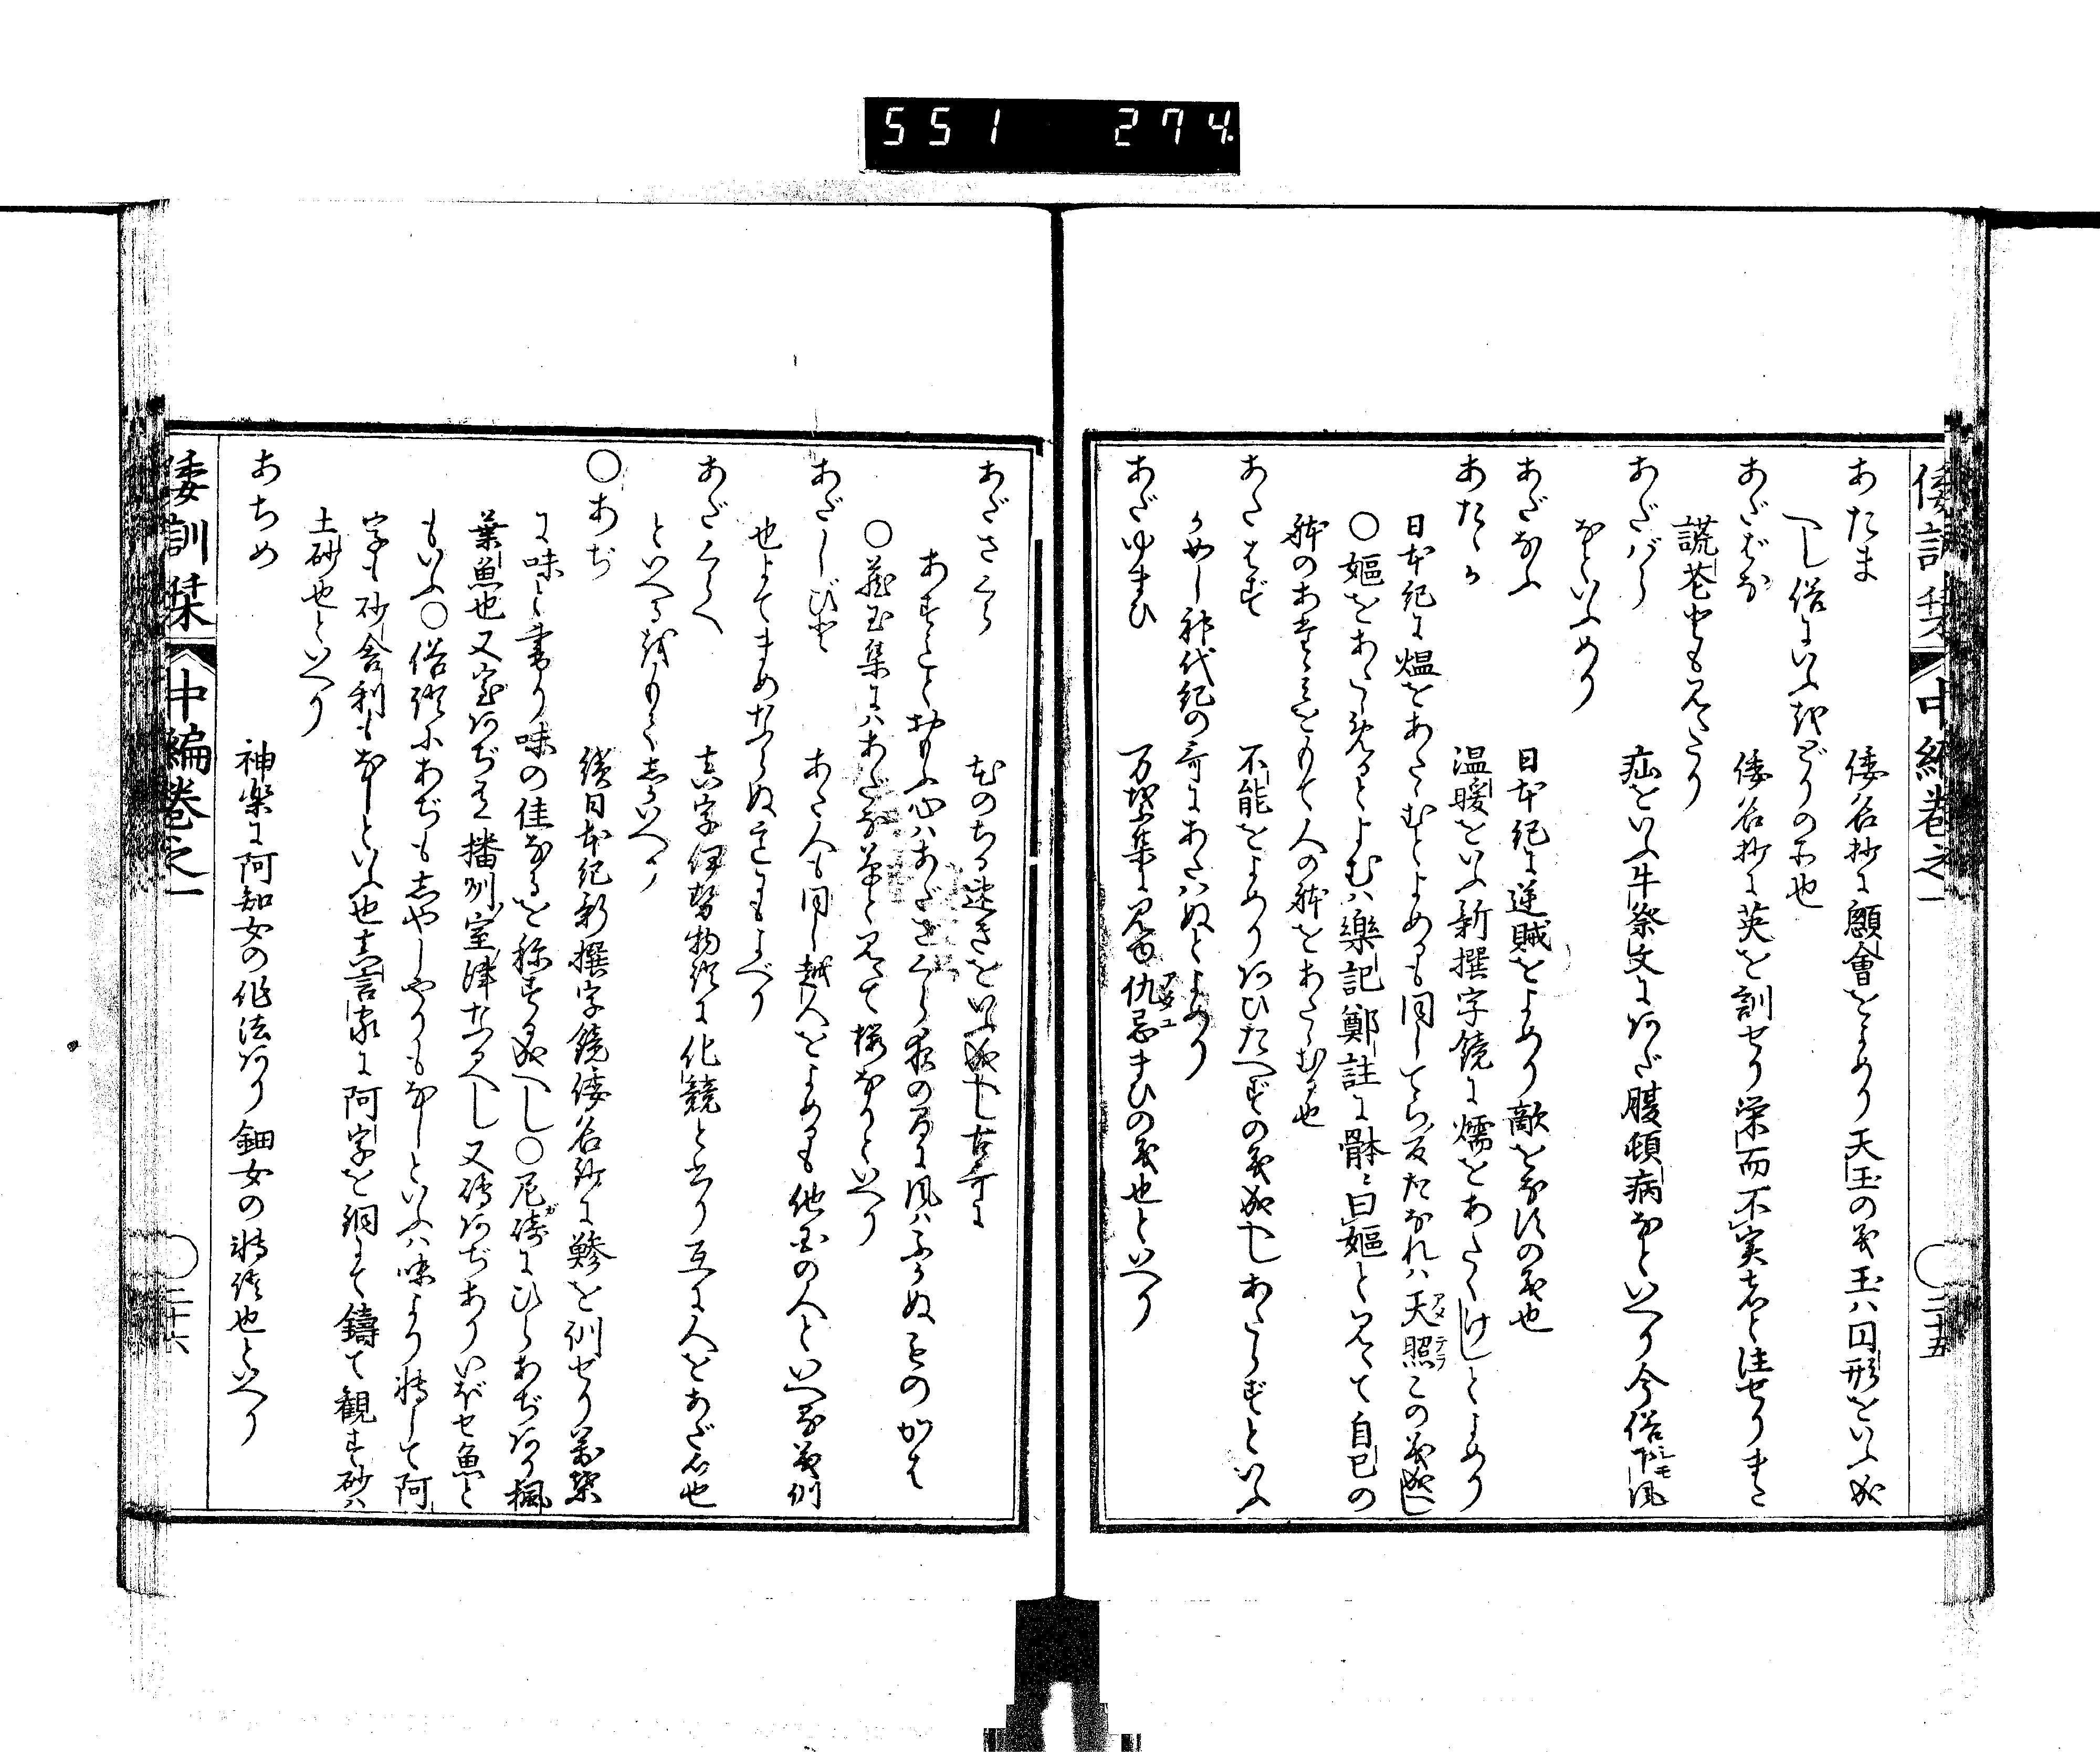 551 274.
倭訓栞 中編卷之一 ○二十五
あたま 倭名抄に顖會をよめり天玉の義玉ハ円形をいふ成
へし俗にいふ救どりの不也
あだばな 倭名抄に英を訓せり栄而不実者と注せりまた
謊花ともみえたり
あだばら 疝をいふ牛祭文にあだ腹頓病なといへり今俗下風
をいふめり
あだなふ 日本紀に逆賊をよめり敵をなすの義也
あたゝか 温暖をいふ新撰字鏡に燸をあたゝけしとよめり
日本紀に煴をあたゝむとよめるも同してら反たなれハ天照この義成へし
○嫗をあたゝめるとよむハ樂記鄭註に體曰嫗とみえて自己の
体のあたゝまりをもて人の体をあたゝむる也
あたはず 不能をよめりあひたへずの義成へしあたらずといふ
かめし神代紀の哥にあたはぬとよめり
あだゆまひ 万葉集に見ゆ仇忌まひの義也といへり
あださくら 花のちる速きをいふ成へし古哥に
あすありとおもふ心ハあださくら夜の間に風ハふかぬものかは
○藏玉集にハあだな草とみえて櫻なりといへり
あだしびと あだ人も同し越人をよめるも他国の人といへる義訓
也よてまめならぬ意にもよべり
あだくらべ 真字伊勢物語に化競と書り互に人をあだ名也
といへるをもてしかいへり
○あぢ 續日本紀新撰字鏡倭名鈔に鯵を訓せり萬葉
に味と書り味の佳なるを称する成へし○尼崎にひらあぢあり楓
葉魚也又室あぢは播州室津なるへし又磯あぢありいぼセ魚と
もいふ○俗語にあぢもしやしやりもなしといふハ味より轉して阿
字も砂舎利もなしといふ也真言家に阿字を銅にて鑄て観す砂ハ
土砂也といへり
あちめ 神楽に阿知女の作法あり鈿女の轉語也といへり
倭訓栞 中編卷之一 ○二十六